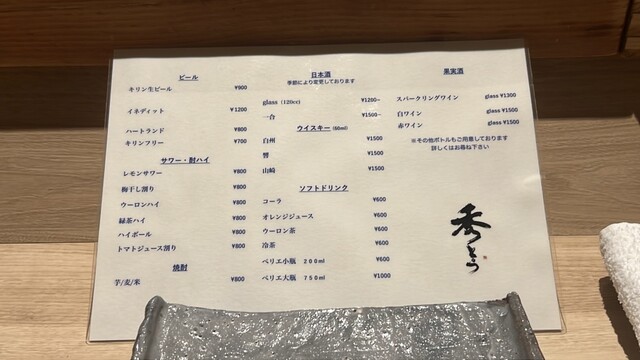 ビール
キリン生ビール ¥900
イネディット ¥1200
ハートランド ¥800
キリンフリー ¥700
サワー・酎ハイ
レモンサワー ¥800
梅干し割り ¥800
ウーロンハイ ¥800
緑茶ハイ ¥800
ハイボール ¥800
トマトジュース割り ¥800
焼酎
芋/麦/米 ¥800
日本酒
季節により変更しております
glass (120cc) ¥1200~
一合 ¥1500~
ウイスキー (60ml)
白州 ¥1500
響 ¥1500
山崎 ¥1500
ソフトドリンク
コーラ ¥600
オレンジジュース ¥600
ウーロン茶 ¥600
冷茶 ¥600
ペリエ小瓶 200ml ¥600
ペリエ大瓶 750ml ¥1000
果実酒
スパークリングワイン glass ¥1300
白ワイン glass ¥1500
赤ワイン glass ¥1500
※その他ボトルもご用意しております
詳しくはお尋ね下さい
秀とう